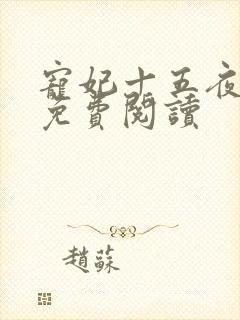 寵妃十五夜
免費閱讀
趙蘇